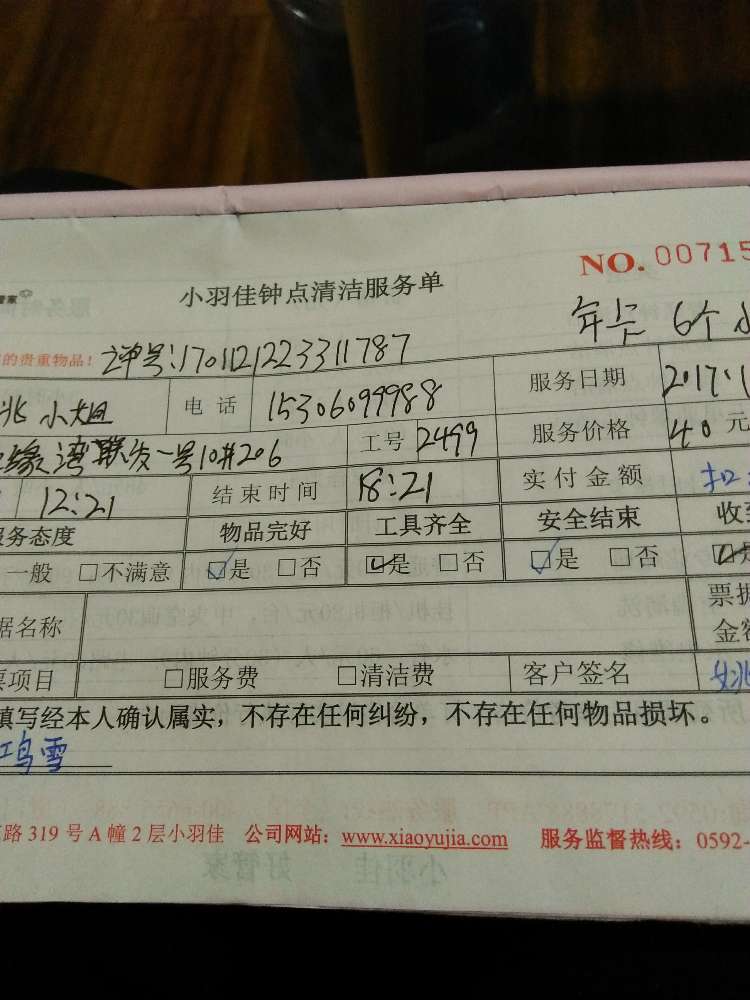 管家
小羽佳钟点清洁服务单
NO. 00715
的贵重物品！ 详单号:170112122331178７
年卡 6个小
姚小姐 电 话 15306099988 服务日期 2017.1
缘湾联发一号10#206 工号 2499 服务价格 40 元
12:21 结束时间 18:21 实付金额 扣
服务态度 物品完好 工具齐全 安全结束 收
一般 □不满意 ☑是 □否 ☑是 □否 ☑是 □否 ☑是
据名称 票据
金额
票项目 □服务费 □清洁费 客户签名 姚
填写经本人确认属实，不存在任何纠纷，不存在任何物品损坏。
鸿雪
路 319 号 A 幢 2 层小羽佳 公司网站：www.xiaoyujia.com 服务监督热线：0592-